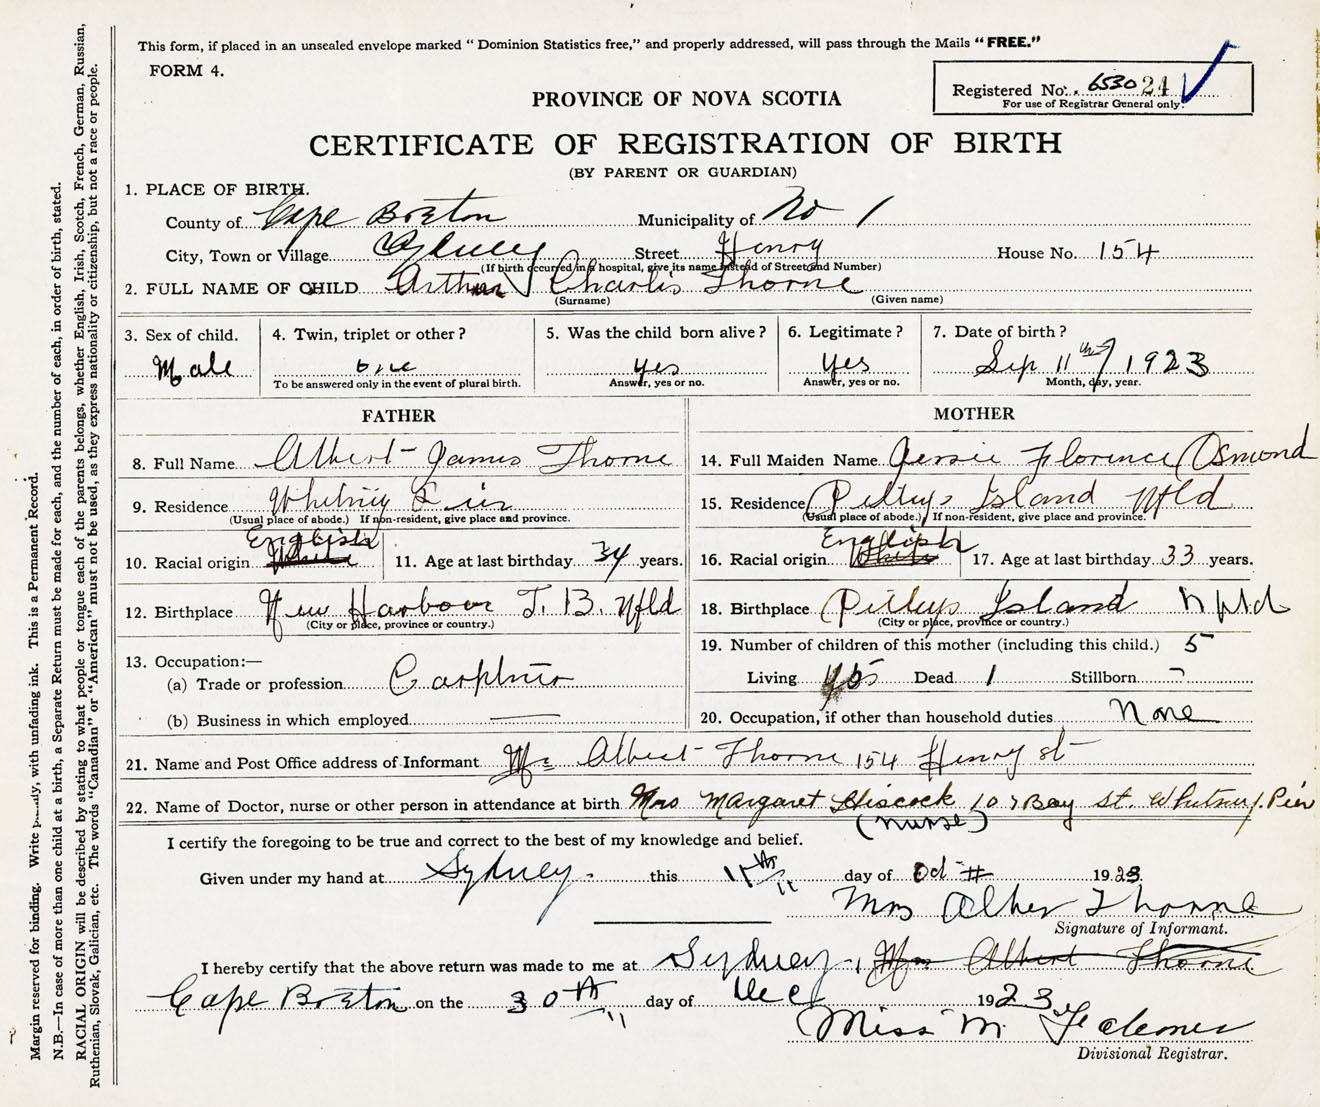 This form, if placed in an unsealed envelope marked “ Dominion Statistics free,” and properly addressed, will pass through the Mails “ FREE.”
FORM 4.
Registered No. 6530 21
For use of Registrar General only.
PROVINCE OF NOVA SCOTIA
CERTIFICATE OF REGISTRATION OF BIRTH
(BY PARENT OR GUARDIAN)
1. PLACE OF BIRTH.
County of Cape Breton Municipality of No 1
City, Town or Village Sydney Street Henry House No. 154
(If birth occurred in a hospital, give its name instead of Street and Number)
2. FULL NAME OF CHILD Arthur Charles Thorne
(Surname) (Given name)
3. Sex of child. 4. Twin, triplet or other? 5. Was the child born alive? 6. Legitimate? 7. Date of birth?
Male one yes yes Sep 11th 1923
To be answered only in the event of plural birth. Answer, yes or no. Answer, yes or no. Month, day, year.
FATHER
8. Full Name Albert James Thorne
9. Residence Whitney Pier
(Usual place of abode.) If non-resident, give place and province.
English
10. Racial origin White 11. Age at last birthday 34 years.
12. Birthplace New Harbour T. B. Nfld
(City or place, province or country.)
13. Occupation:—
(a) Trade or profession Carpenter
(b) Business in which employed
MOTHER
14. Full Maiden Name Jessie Florence Osmond
15. Residence Pilleys Island Nfld
(Usual place of abode.) If non-resident, give place and province.
English
16. Racial origin White 17. Age at last birthday 33 years.
18. Birthplace Pilleys Island Nfld
(City or place, province or country.)
19. Number of children of this mother (including this child.) 5
Living Dead 1 Stillborn
20. Occupation, if other than household duties None
21. Name and Post Office address of Informant Mrs Albert Thorne 154 Henry st
22. Name of Doctor, nurse or other person in attendance at birth Mrs Margaret Hiscock 107 Bay St. Whitney Pier
(nurse)
I certify the foregoing to be true and correct to the best of my knowledge and belief.
Given under my hand at Sydney. this 11th day of Oct 1923
Mrs Alber Thorne
Signature of Informant.
I hereby certify that the above return was made to me at Sydney, Mrs Albert Thorne
Cape Breton on the 30th day of Dec 1923
Miss M.
Divisional Registrar.
Margin reserved for binding. Write with unfading ink. This is a Permanent Record.
N.B.—In case of more than one child at a birth, a Separate Return must be made for each, and the number of each, in order of birth, stated.
RACIAL ORIGIN will be described by stating to what people or tongue each of the parents belongs, whether English, Irish, Scotch, French, German, Russian,
Ruthenian, Slovak, Galician, etc. The words “Canadian” or “American” must not be used, as they express nationality or citizenship, but not a race or people.